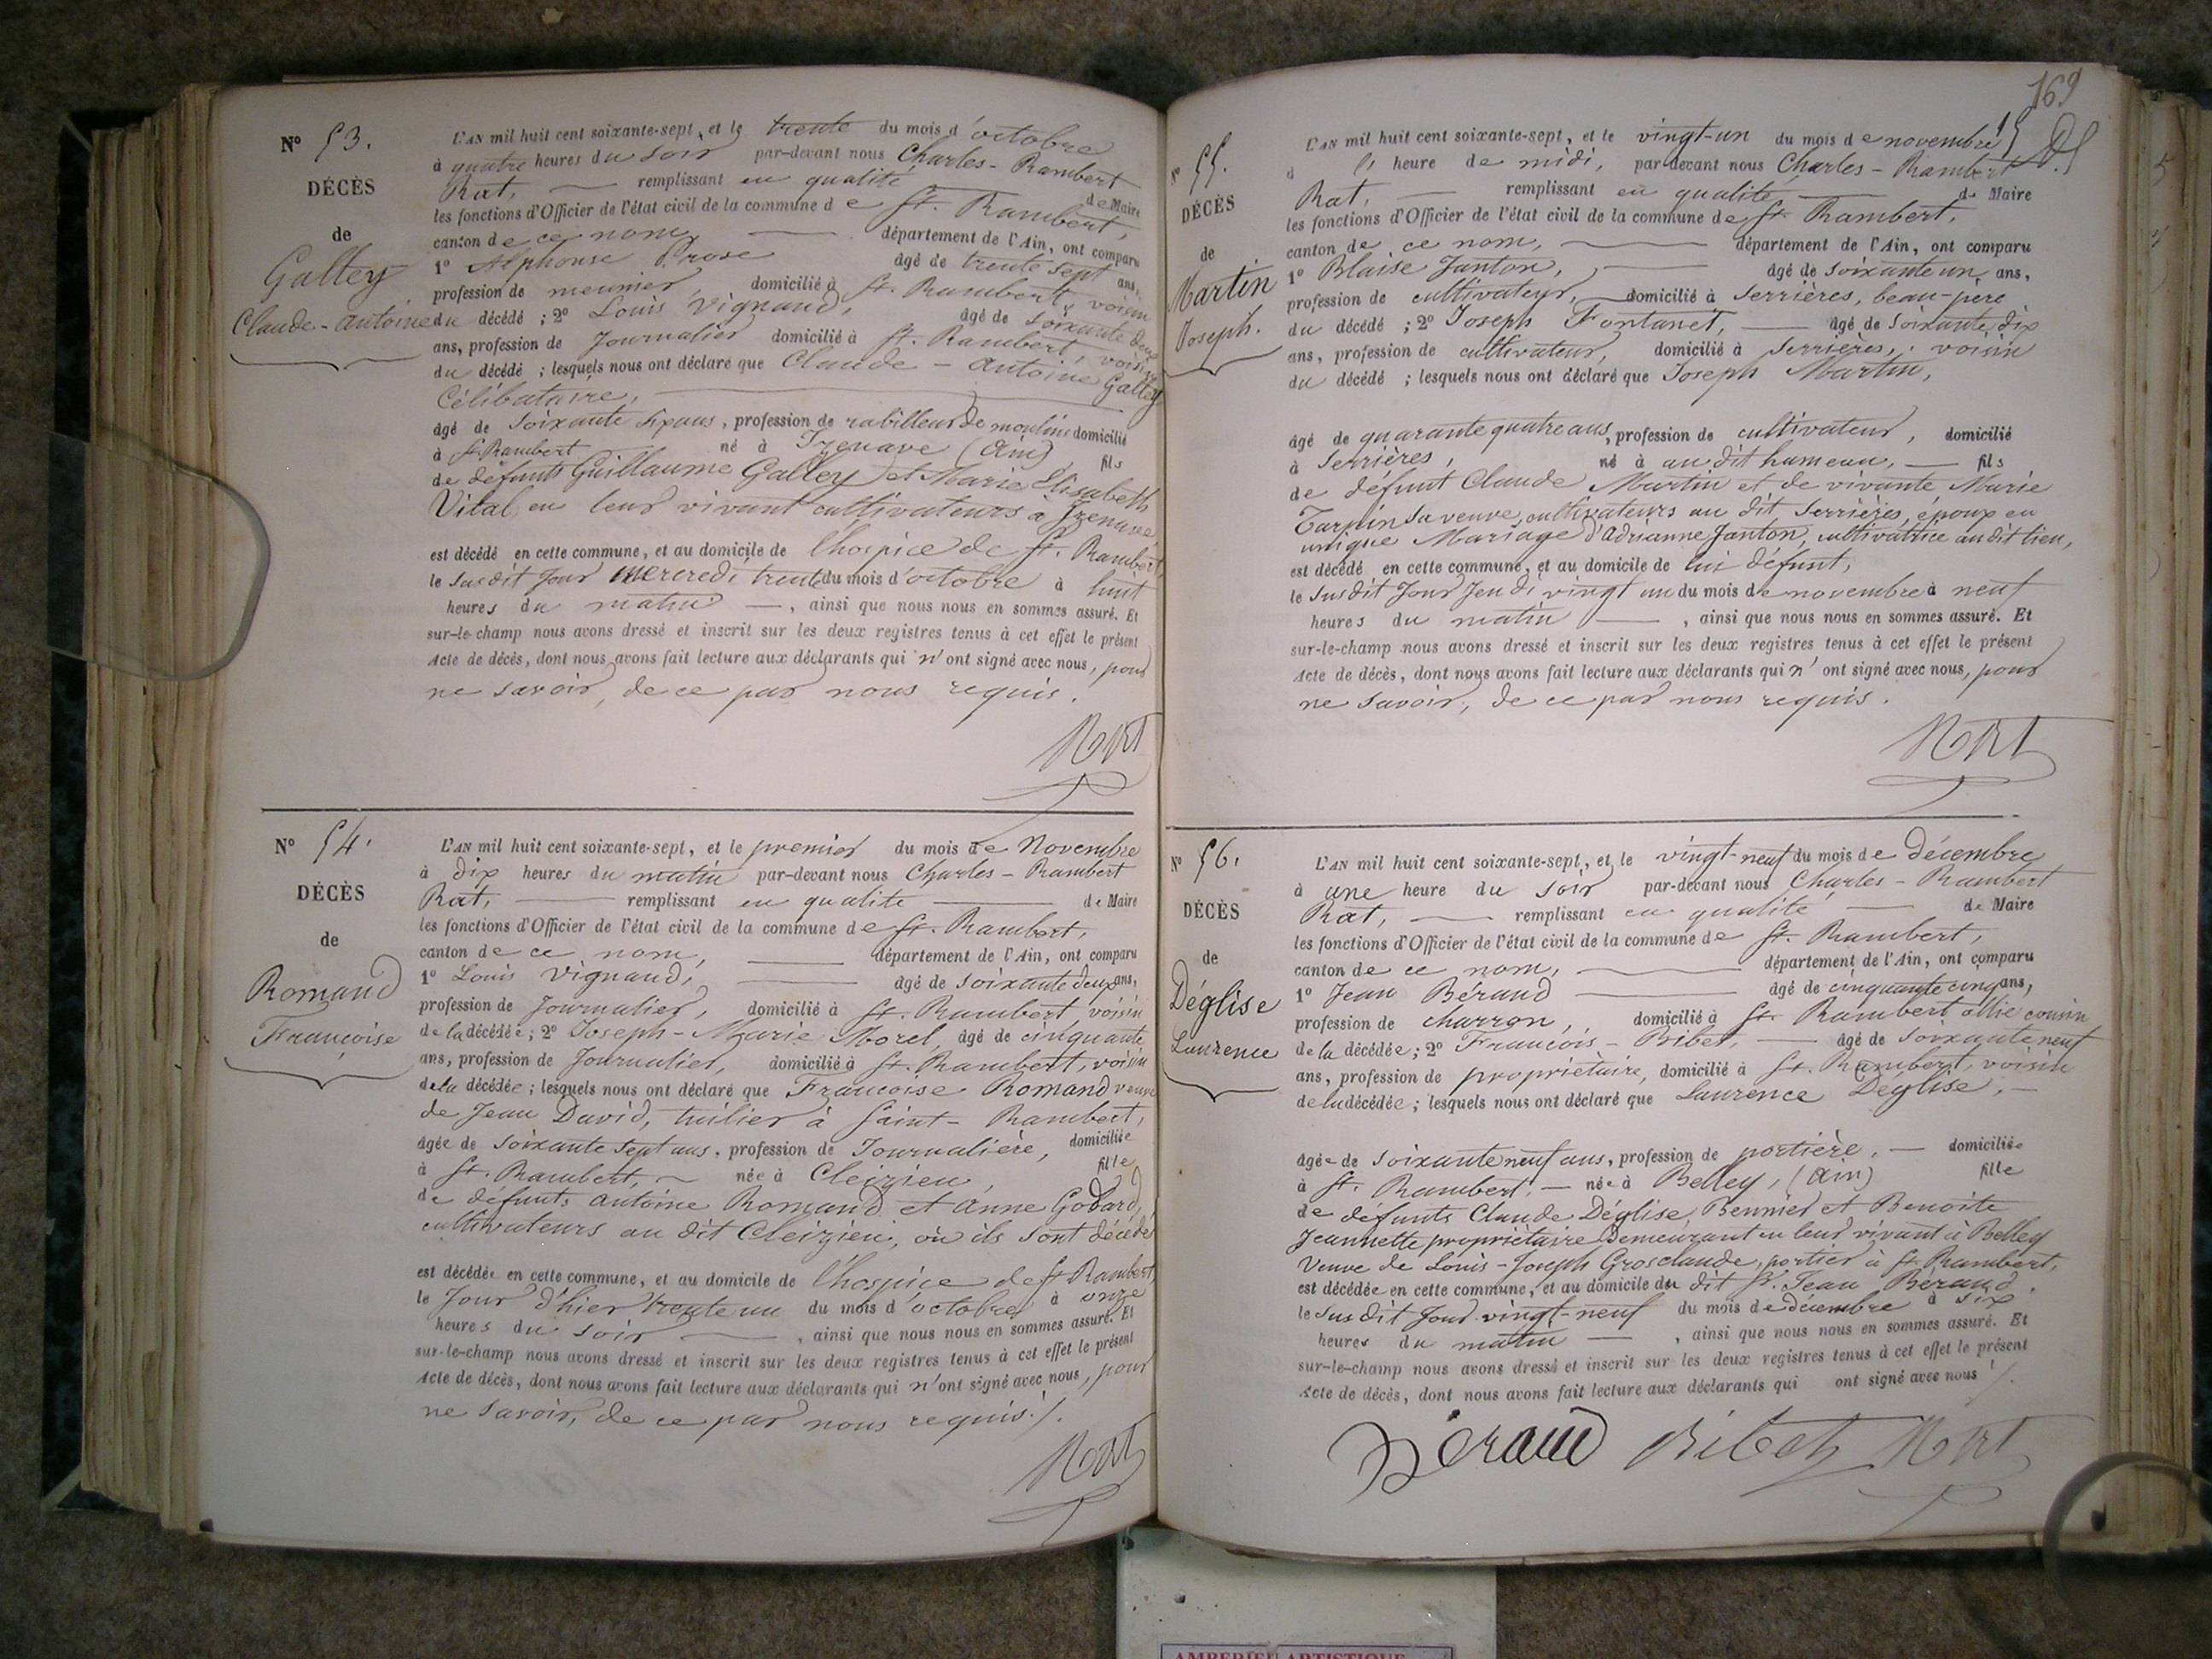 N° 53.
DÉCÈS
de
Galley
Claude-Antoine
L'AN mil huit cent soixante-sept, et le trente du mois d'octobre
à quatre heures du soir par-devant nous Charles-Rambert
Rat, remplissant en qualité de Maire
les fonctions d'Officier de l'état civil de la commune de St. Rambert,
canton de ce nom, département de l'Ain, ont comparu
1° Alphonse Prose âgé de trente sept ans,
profession de meunier, domicilié à St. Rambert, voisin
du décédé ; 2° Louis Vignaud, âgé de soixante deux
ans, profession de Journalier domicilié à St. Rambert, voisin
du décédé ; lesquels nous ont déclaré que Claude-Antoine Galley
Célibataire,
âgé de soixante six ans, profession de rabilleur de moulins domicilié
à St. Rambert né à Izenave (Ain) fils
de défunts Guillaume Galley et Marie Elisabeth
Vital, en leur vivant cultivateurs à Izenave
est décédé en cette commune, et au domicile de l'hospice de St. Rambert,
le susdit jour mercredi trente du mois d'octobre à huit
heures du matin, ainsi que nous nous en sommes assuré. Et
sur-le-champ nous avons dressé et inscrit sur les deux registres tenus à cet effet le présent
Acte de décès, dont nous avons fait lecture aux déclarants qui n'ont signé avec nous, pour
ne savoir, de ce par nous requis.
N° 54.
DÉCÈS
de
Romand
Françoise
L'AN mil huit cent soixante-sept, et le premier du mois de Novembre
à dix heures du matin par-devant nous Charles-Rambert
Rat, remplissant en qualité de Maire
les fonctions d'Officier de l'état civil de la commune de St. Rambert,
canton de ce nom, département de l'Ain, ont comparu
1° Louis Vignaud, âgé de soixante deux ans,
profession de Journalier, domicilié à St. Rambert voisin
de la décédée ; 2° Joseph-Marie Morel, âgé de cinquante
ans, profession de Journalier, domicilié à St. Rambert, voisin
de la décédée ; lesquels nous ont déclaré que Françoise Romand veuve
de Jean David, tuilier à Saint-Rambert,
âgée de soixante sept ans, profession de Journalière, domiciliée
à St. Rambert, née à Cleizieu, fille
de défunts Antoine Romand et Anne Godard,
cultivateurs au dit Cleizieu, où ils sont décédés
est décédée en cette commune, et au domicile de l'hospice de St Rambert
le Jour d'hier trente un du mois d'octobre à onze
heures du soir, ainsi que nous nous en sommes assuré. Et
sur-le-champ nous avons dressé et inscrit sur les deux registres tenus à cet effet le présent
Acte de décès, dont nous avons fait lecture aux déclarants qui n'ont signé avec nous, pour
ne savoir, de ce par nous requis./.
169
N° 55.
DÉCÈS
de
Martin
Joseph.
L'AN mil huit cent soixante-sept, et le vingt-un du mois de novembre
à l' heure de midi, par-devant nous Charles-Rambert
Rat, remplissant en qualité de Maire
les fonctions d'Officier de l'état civil de la commune de St. Rambert,
canton de ce nom, département de l'Ain, ont comparu
1° Blaise Janton, âgé de soixante un ans,
profession de cultivateur, domicilié à Serrières, beau-père
du décédé ; 2° Joseph Fontanet, âgé de soixante dix
ans, profession de cultivateur, domicilié à Serrières, voisin
du décédé ; lesquels nous ont déclaré que Joseph Martin,
âgé de quarante quatre ans, profession de cultivateur, domicilié
à Serrières, né à au dit hameau, fils
de défunt Claude Martin et de vivante Marie
Tarpin sa veuve, cultivateurs au dit Serrières, époux en
unique Mariage d'Adrianne Janton, cultivatrice au dit lieu,
est décédé en cette commune, et au domicile de lui défunt,
le susdit Jour Jeudi vingt un du mois de novembre à neuf
heures du matin, ainsi que nous nous en sommes assuré. Et
sur-le-champ nous avons dressé et inscrit sur les deux registres tenus à cet effet le présent
Acte de décès, dont nous avons fait lecture aux déclarants qui n'ont signé avec nous, pour
ne savoir, de ce par nous requis.
N° 56.
DÉCÈS
de
Déglise
Laurence
L'AN mil huit cent soixante-sept, et le vingt-neuf du mois de décembre
à une heure du soir par-devant nous Charles-Rambert
Rat, remplissant en qualité de Maire
les fonctions d'Officier de l'état civil de la commune de St. Rambert,
canton de ce nom, département de l'Ain, ont comparu
1° Jean Béraud âgé de cinquante cinq ans,
profession de charron, domicilié à St. Rambert allié cousin
de la décédée ; 2° François-Ribet, âgé de soixante neuf
ans, profession de propriétaire, domicilié à St. Rambert, voisin
de la décédée ; lesquels nous ont déclaré que Laurence Déglise,
âgée de soixante neuf ans, profession de portière, domiciliée
à St. Rambert, née à Belley, (Ain) fille
de défunts Claude Déglise, Bennier et Benoite
Jeannette propriétaire demeurant en leur vivant à Belley
Veuve de Louis-Joseph Grosclaude, portier à St Rambert,
est décédée en cette commune, et au domicile du dit Sr. Jean Béraud,
le susdit Jour vingt-neuf du mois de décembre à six
heures du matin, ainsi que nous nous en sommes assuré. Et
sur-le-champ nous avons dressé et inscrit sur les deux registres tenus à cet effet le présent
Acte de décès, dont nous avons fait lecture aux déclarants qui ont signé avec nous /.
Béraud Ribet
AMBERIEU ARTISTIQUE